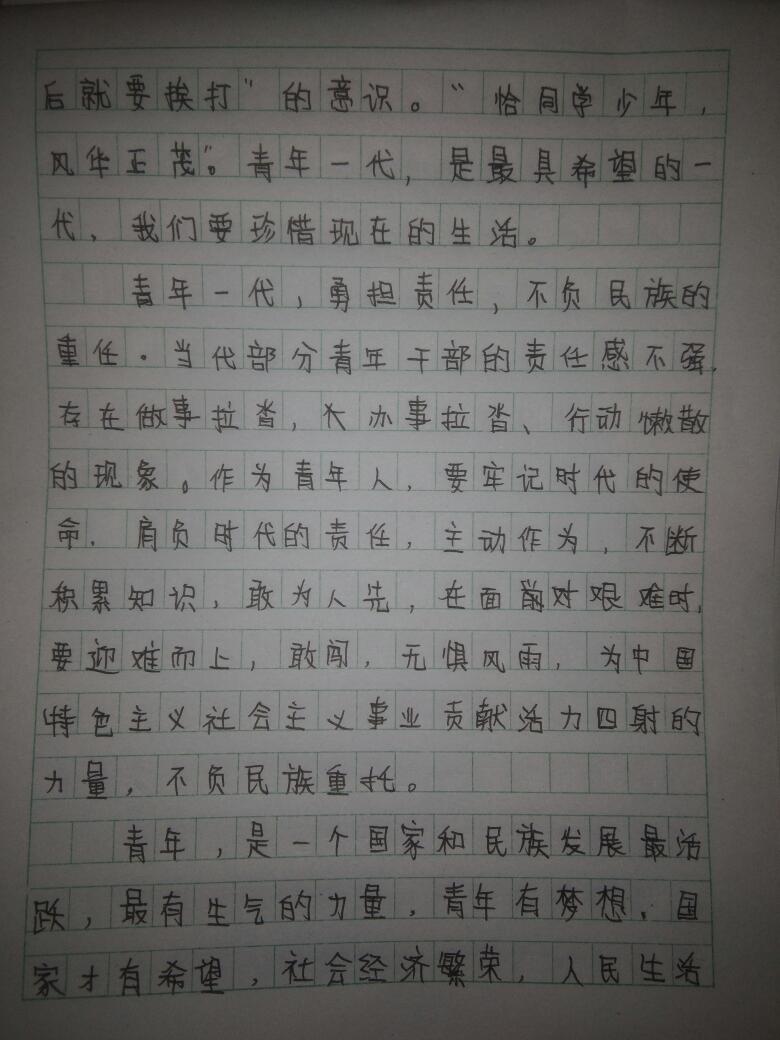 后就要挨打”的意识。“恰同学少年，
风华正茂”。青年一代，是最具希望的一
代，我们要珍惜现在的生活。
青年一代，勇担责任，不负民族的
重任。当代部分青年干部的责任感不强，
存在做事拉沓，办事拉沓、行动懒散
的现象。作为青年人，要牢记时代的使
命，肩负时代的责任，主动作为，不断
积累知识，敢为人先，在面前对艰难时，
要迎难而上，敢闯，无惧风雨，为中国
特色主义社会主义事业贡献活力四射的
力量，不负民族重托。
青年，是一个国家和民族发展最活
跃，最有生气的力量，青年有梦想，国
家才有希望，社会经济繁荣，人民生活